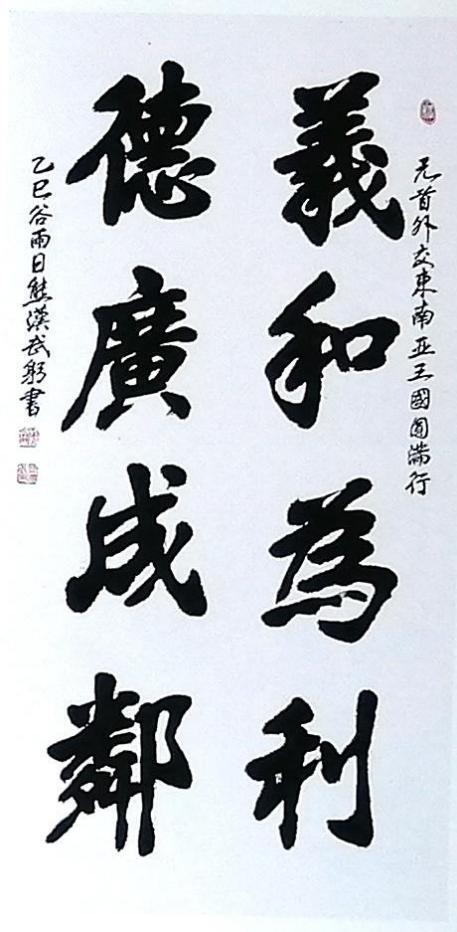 元首外交東南亚三國圓滿行
義和為利
德廣成鄰
乙巳谷雨日熊漢武躬書